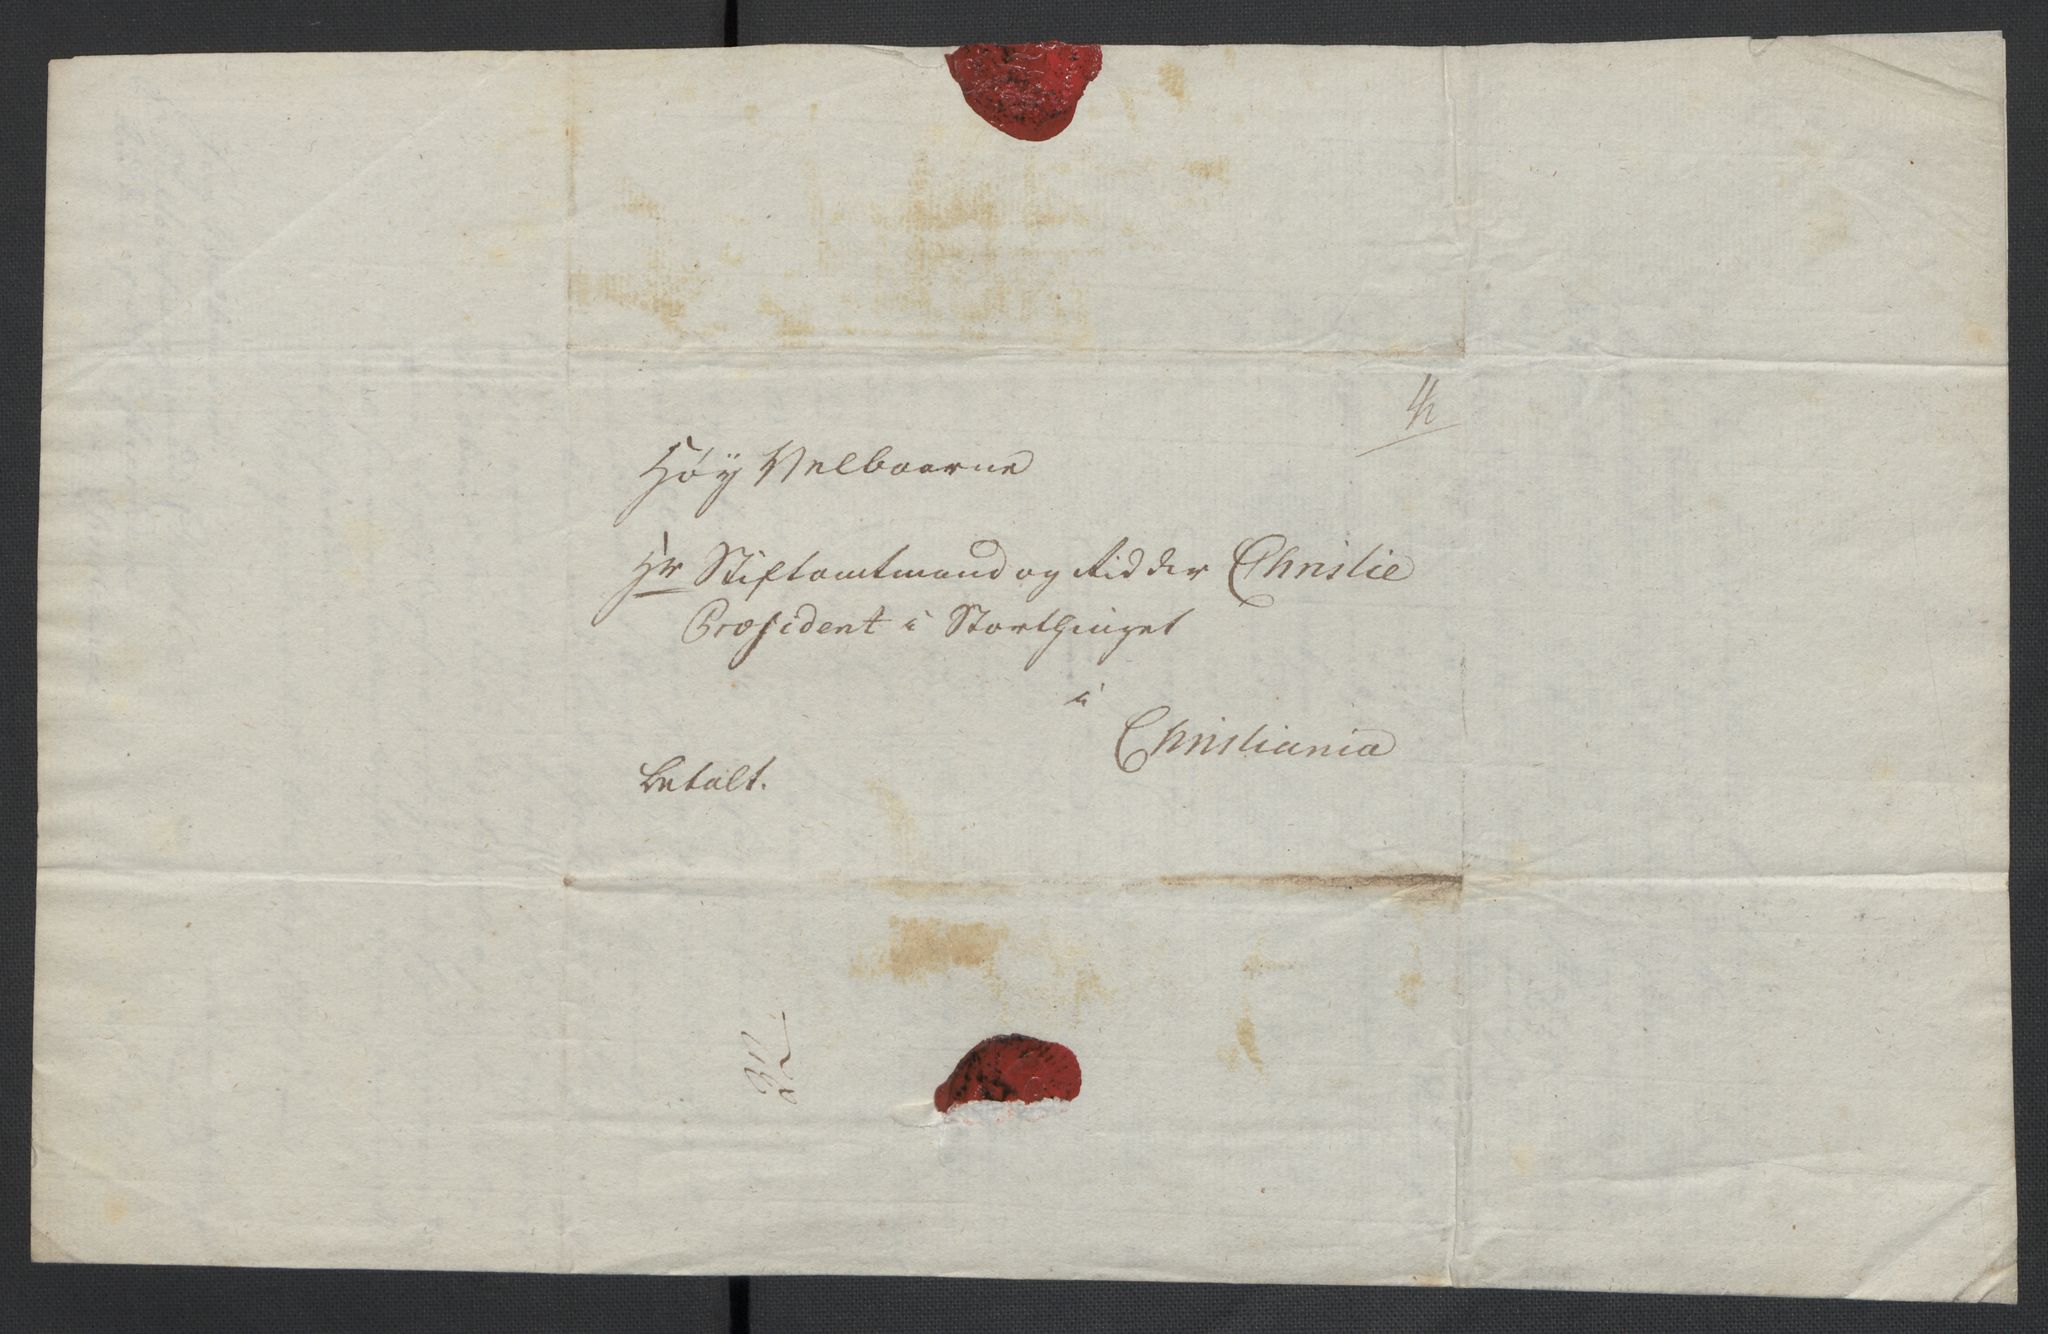 Høy Velbaarne
Hr Stiftamtmand og Ridder Christie
Præsident i Storthinget
i
Christiania
betalt.